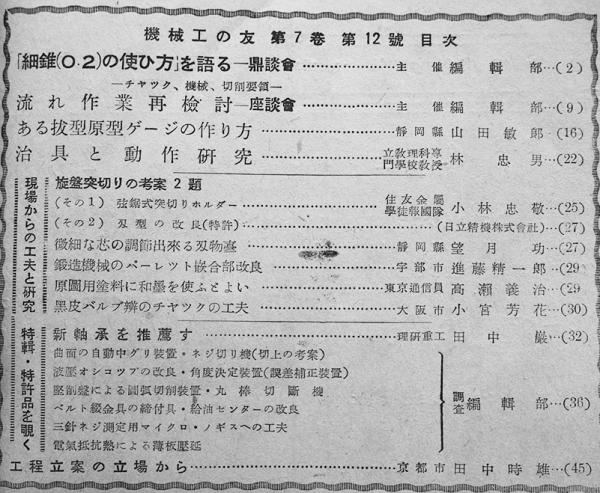 機械工の友 第7卷 第12號 目次
「細錐(0.2)の使ひ方」を語る—鼎談會 主催 編輯部 (2)
—チヤツク、機械、切削要領—
流れ作業再檢討—座談會 主催 編輯部 (9)
ある拔型原型ゲージの作り方 靜岡縣 山田敏郎 (16)
治具と動作研究 立敎理科專門學校敎授 林忠男 (22)
現場からの工夫と硏究
旋盤突切りの考案2題
(その1) 弦鋸式突切りホルダー 住友金屬學徒報國隊 小林忠敬 (25)
(その2) 刄型の改良(特許) (日立精機株式會社) (27)
微細な芯の調節出來る刄物臺 靜岡縣 望月功 (27)
鍛造機械のバーレツト嵌合部改良 宇部市 進藤精一郎 (29
原圖用塗料に和墨を使ふとよい 東京通信員 高瀨義治 (29
黑皮バルブ辨のチヤツクの工夫 大阪市 小宮芳花 (30)
特輯・特許品を覗く
新軸承を推薦す 理研重工 田中巖 (32)
曲面の自動中グリ裝置・ネジ切り機(切上の考案)
液壓オシコツプの改良・角度決定裝置(誤差補正裝置)
堅削盤による圓弧切削裝置・丸棒切斷機
ベルト綴金具の締付具・給油センターの改良
三針ネジ測定用マイクロ・ノギスへの工夫
電氣抵抗熱による薄板壓延
調査 編輯部 (36)
工程立案の立場から 京都市 田中時雄 (45)